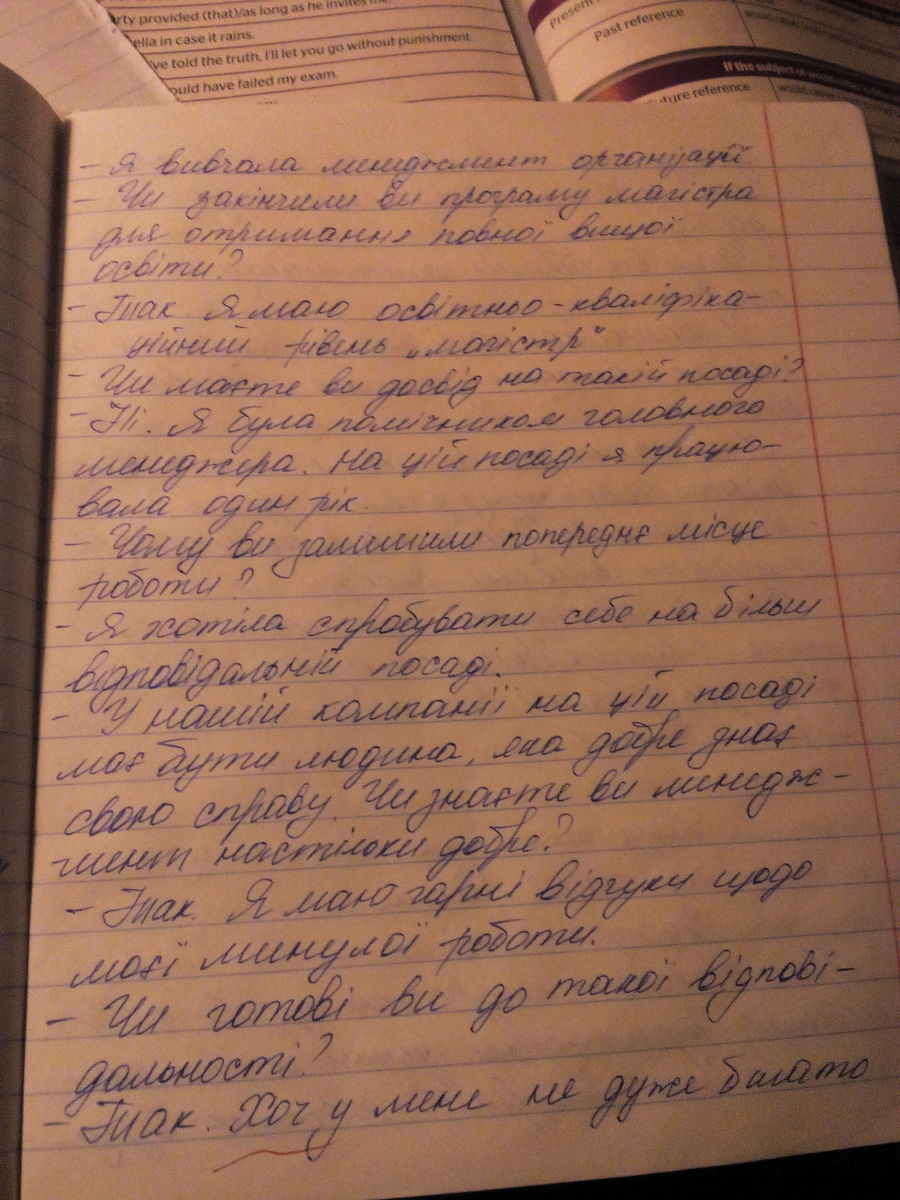 arty provided (that)/as long as he invites me.
ella in case it rains.
've told the truth, I'll let you go without punishment.
ould have failed my exam.
Present/
Past reference
If the subject of would rather
Future reference
would rather
– Я вивчала менеджмент організації
– Чи закінчили ви програму магістра
для отримання повної вищої
освіти?
– Так. Я маю освітньо-кваліфіка-
ційний рівень „магістр“
– Чи маєте ви досвід на такій посаді?
– Ні. Я була помічником головного
менеджера. На цій посаді я працю-
вала один рік.
– Чому ви залишили попереднє місце
роботи?
– Я хотіла спробувати себе на більш
відповідальній посаді.
– У нашій компанії на цій посаді
має бути людина, яка добре знає
свою справу. Чи знаєте ви менедж-
мент настільки добре?
– Так. Я маю гарні відгуки щодо
моєї минулої роботи.
– Чи готові ви до такої відпові-
дальності?
– Так. Хоч у мене не дуже багато